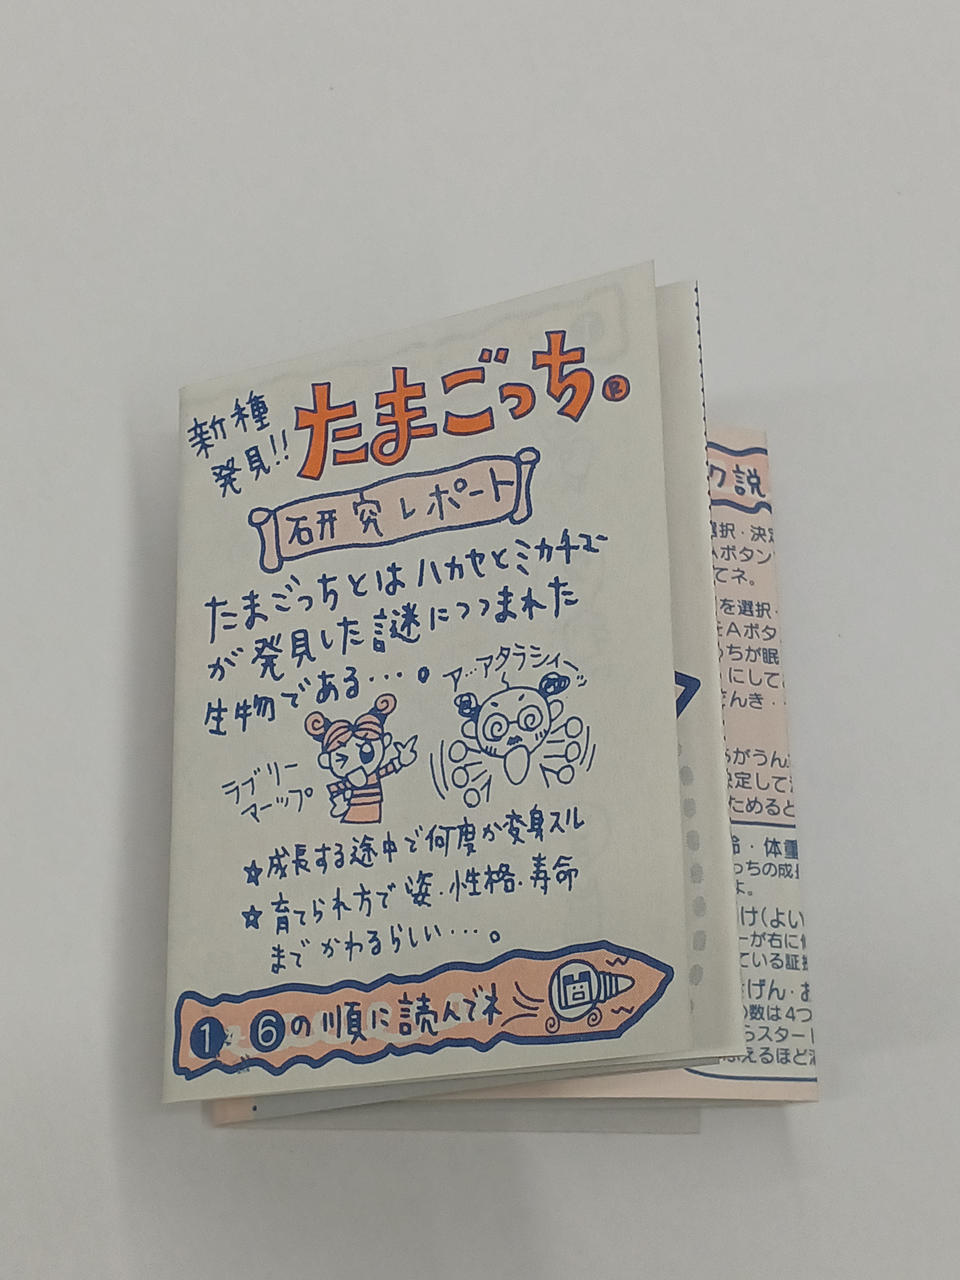 新種
発見!!
たまごっち®
研究レポート
たまごっちとはハカセとミカチュー
が発見した謎につつまれた
生物である…。
ア…アタラシイ〜
ラブリー
マーップ
☆成長する途中で何度か変身スル
☆育てられ方で姿・性格・寿命
までかわるらしい…。
1 6の順に読んでネ
ク説
択・決定
Aボタン
てネ。
を選択・
Aボタ
っちが眠
にしてい
げんき・
がうん
決定して
ためると
齢・体重
っちの成
よ。
け(よい
ーが右に
ている証
げん・お
の数は4つ
らスタート
ふえるほど